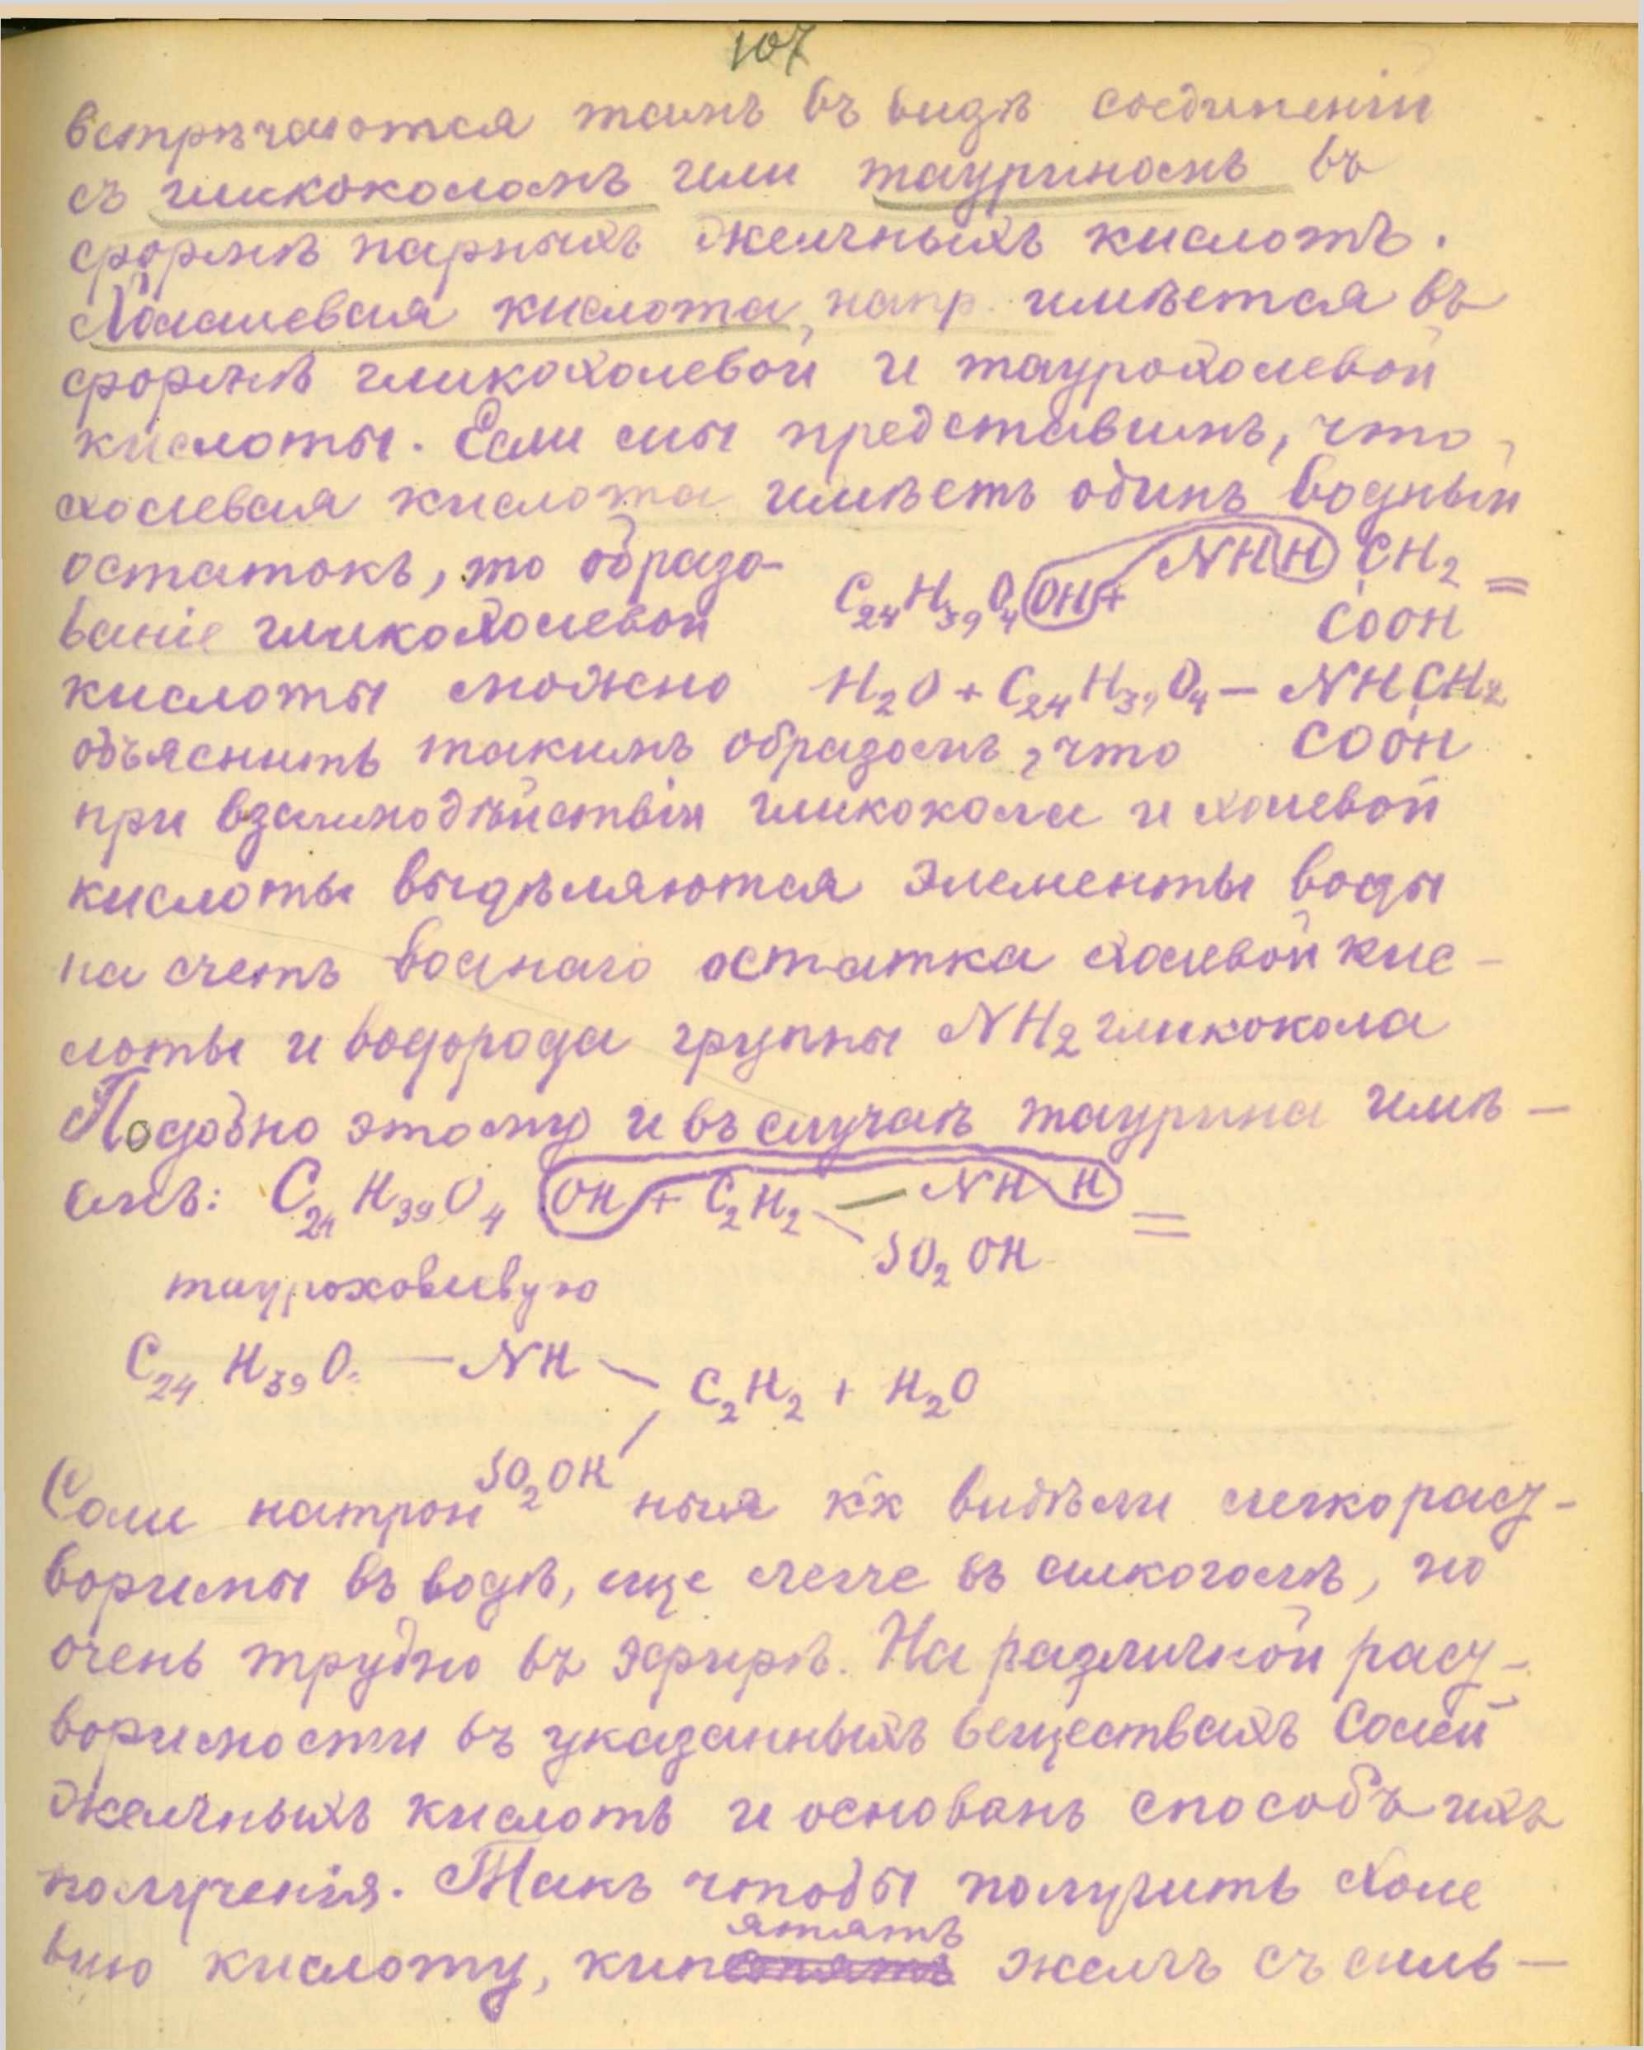 107
встрѣчаются тамъ въ видѣ соединеніи
съ гликоколомъ или тауриномъ въ
формѣ парныхъ желчныхъ кислотъ.
Холалевая кислота, напр. имѣется въ
формѣ гликохолевой и таурохолевой
кислоты. Если мы представимъ, что
холевая кислота имѣетъ одинъ водный
остатокъ, то образо-
C24H39O4OH + NHH CH2 =
COOH
ваніе гликохолевой
кислоты можно H2O + C24H39O4 – NHCH2
объяснить такимъ образомъ, что COOH
при взаимодѣйствіи гликокола и холевой
кислоты выдѣляются элементы воды
на счетъ воднаго остатка холевой кис-
лоты и водорода группы NH2 гликокола
Подобно этому и въ случаѣ таурина имѣ-
емъ: C24H39O4 OH + C2H2 – NHH =
SO2OH
таурохолевую
C24H39O. – NH – C2H2 + H2O
SO2OH
Соли натрон ныя кк видѣли легко раст-
воримы въ водѣ, еще легче въ алкоголѣ, но
очень трудно въ эфирѣ. На различной раст-
воримости въ указанныхъ веществахъ солей
желчныхъ кислотъ и основанъ способъ ихъ
полученія. Такъ чтобы получить холе
вую кислоту, кипятятъ желчь съ силь-